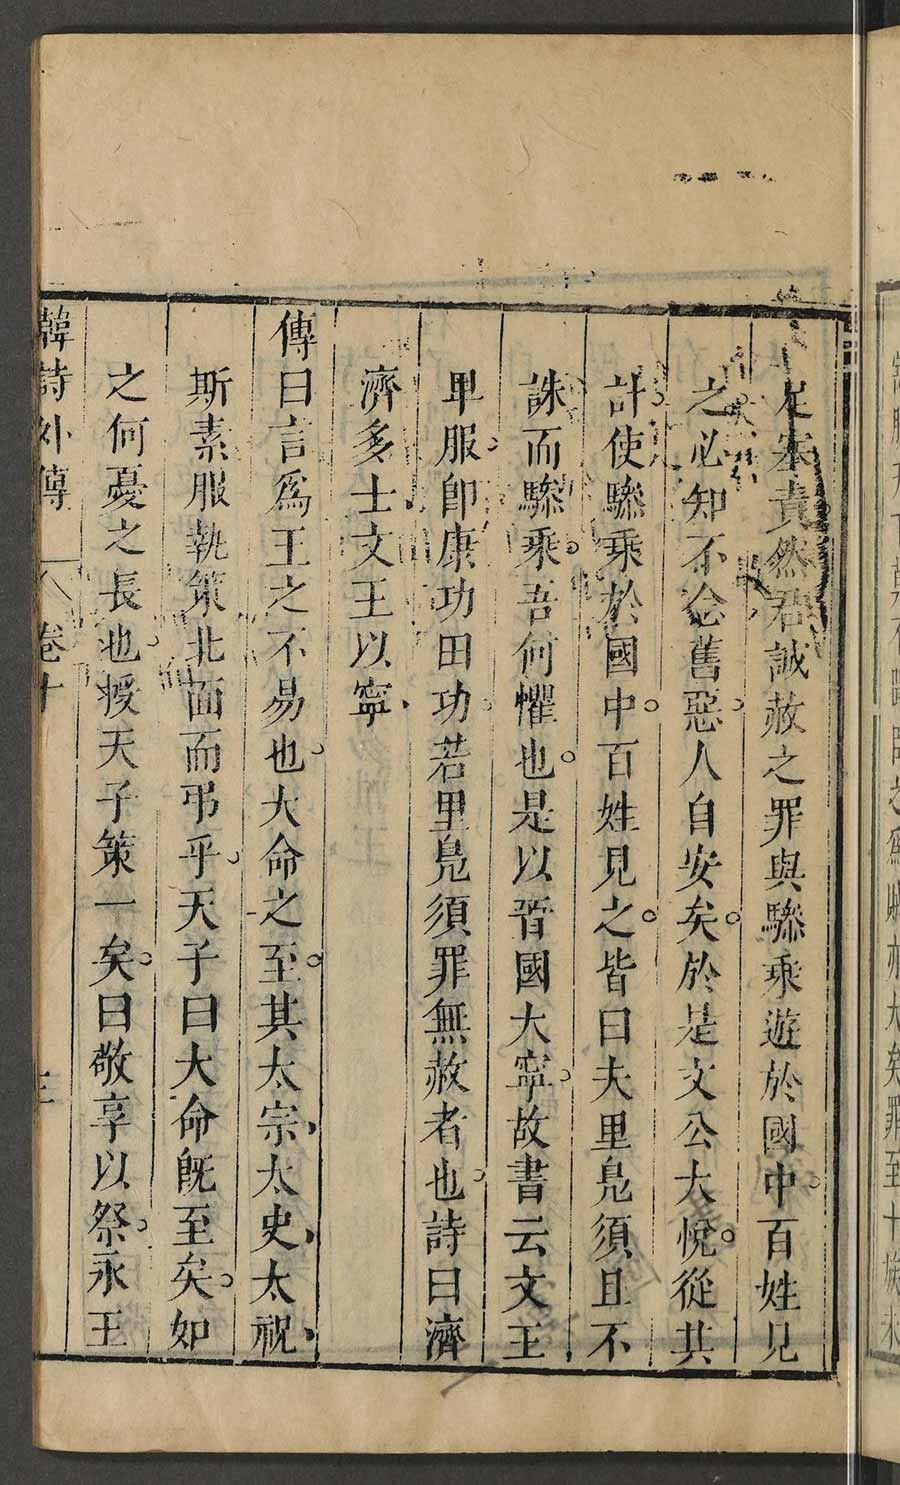 足塞責然君誠赦之罪與驂乘遊於國中百姓見
之必知不念舊惡人自安矣於是文公大悅從其
計使驂乘於國中百姓見之皆曰夫里鳧須且不
誅而驂乘吾何懼也是以晉國大寧故書云文王
卑服即康功田功若里鳧須罪無赦者也詩曰濟
濟多士文王以寧
傳曰言為王之不易也大命之至其太宗太史太祝
斯素服執策北面而弔乎天子曰大命既至矣如
之何憂之長也授天子策一矣曰敬享以祭永王
韓詩外傳 卷十